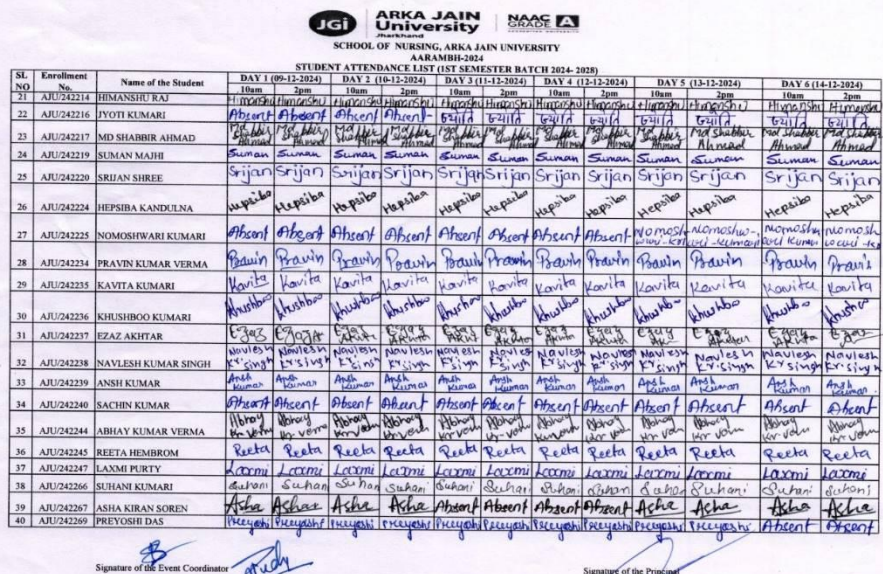 JGi ARKA JAIN University Jharkhand NAAC GRADE A
SCHOOL OF NURSING, ARKA JAIN UNIVERSITY
AARAMBH-2024
STUDENT ATTENDANCE LIST (1ST SEMESTER BATCH 2024- 2028)
SL NO Enrollment No. Name of the Student DAY 1 (09-12-2024) DAY 2 (10-12-2024) DAY 3 (11-12-2024) DAY 4 (12-12-2024) DAY 5 (13-12-2024) DAY 6 (14-12-2024)
10am 2pm 10am 2pm 10am 2pm 10am 2pm 10am 2pm 10am 2pm
21 AJU/242214 HIMANSHU RAJ Himanshu Himanshu Himanshu Himanshu Himanshu Himanshu Himanshu Himanshu Himanshu Himanshu Himanshu Himanshu
22 AJU/242216 JYOTI KUMARI Absent Absent Absent Absent ज्योति ज्योति ज्योति ज्योति ज्योति ज्योति ज्योति ज्योति
23 AJU/242217 MD SHABBIR AHMAD Md Shabbir Ahmad Md Shabbir Ahmad Md Shabbir Ahmad Md Shabbir Ahmad Md Shabbir Ahmad Md Shabbir Ahmad Md Shabbir Ahmad Md Shabbir Ahmad Md Shabbir Ahmad Md Shabbir Ahmad Md Shabbir Ahmad Md Shabbir Ahmad
24 AJU/242219 SUMAN MAJHI Suman Suman Suman Suman Suman Suman Suman Suman Suman Suman Suman Suman
25 AJU/242220 SRIJAN SHREE Srijan Srijan Srijan Srijan Srijan Srijan Srijan Srijan Srijan Srijan Srijan Srijan
26 AJU/242224 HEPSIBA KANDULNA Hepsiba Hepsiba Hepsiba Hepsiba Hepsiba Hepsiba Hepsiba Hepsiba Hepsiba Hepsiba Hepsiba Hepsiba
27 AJU/242225 NOMOSHWARI KUMARI Absent Absent Absent Absent Absent Absent Absent Absent
28 AJU/242234 PRAVIN KUMAR VERMA Pravin Pravin Pravin Pravin Pravin Pravin Pravin Pravin Pravin Pravin Pravin Pravin
29 AJU/242235 KAVITA KUMARI Kavita Kavita Kavita Kavita Kavita Kavita Kavita Kavita Kavita Kavita Kavita Kavita
30 AJU/242236 KHUSHBOO KUMARI Khushboo Khushboo Khushboo Khushboo Khushboo Khushboo Khushboo Khushboo Khushboo Khushboo Khushboo Khushboo
31 AJU/242237 EZAZ AKHTAR Ezaz
32 AJU/242238 NAVLESH KUMAR SINGH Navlesh Kr Singh Navlesh Kr Singh Navlesh Kr Singh Navlesh Kr Singh Navlesh Kr Singh Navlesh Kr Singh Navlesh Kr Singh Navlesh Kr Singh Navlesh Kr Singh Navlesh Kr Singh Navlesh Kr Singh Navlesh Kr Singh
33 AJU/242239 ANSH KUMAR Ansh Kumar Ansh Kumar Ansh Kumar Ansh Kumar Ansh Kumar Ansh Kumar Ansh Kumar Ansh Kumar Ansh Kumar Ansh Kumar Ansh Kumar Ansh Kumar
34 AJU/242240 SACHIN KUMAR Absent Absent Absent Absent Absent Absent Absent Absent Absent Absent Absent Absent
35 AJU/242244 ABHAY KUMAR VERMA Abhay Kr Verma Abhay Kr Verma Abhay Abhay Abhay Abhay Abhay Abhay Abhay Abhay Abhay Abhay
36 AJU/242245 REETA HEMBROM Reeta Reeta Reeta Reeta Reeta Reeta Reeta Reeta Reeta Reeta Reeta Reeta
37 AJU/242247 LAXMI PURTY Laxmi Laxmi Laxmi Laxmi Laxmi Laxmi Laxmi Laxmi Laxmi Laxmi Laxmi Laxmi
38 AJU/242266 SUHANI KUMARI Suhani Suhani Suhani Suhani Suhani Suhani Suhani Suhani Suhani Suhani Suhani Suhani
39 AJU/242267 ASHA KIRAN SOREN Asha Asha Asha Asha Absent Absent Absent Absent Asha Asha Asha Asha
40 AJU/242269 PREYOSHI DAS Preyoshi Preyoshi Preyoshi Preyoshi Preyoshi Preyoshi Preyoshi Preyoshi Preyoshi Preyoshi Absent Absent
Signature of the Event Coordinator
Signature of the Principal